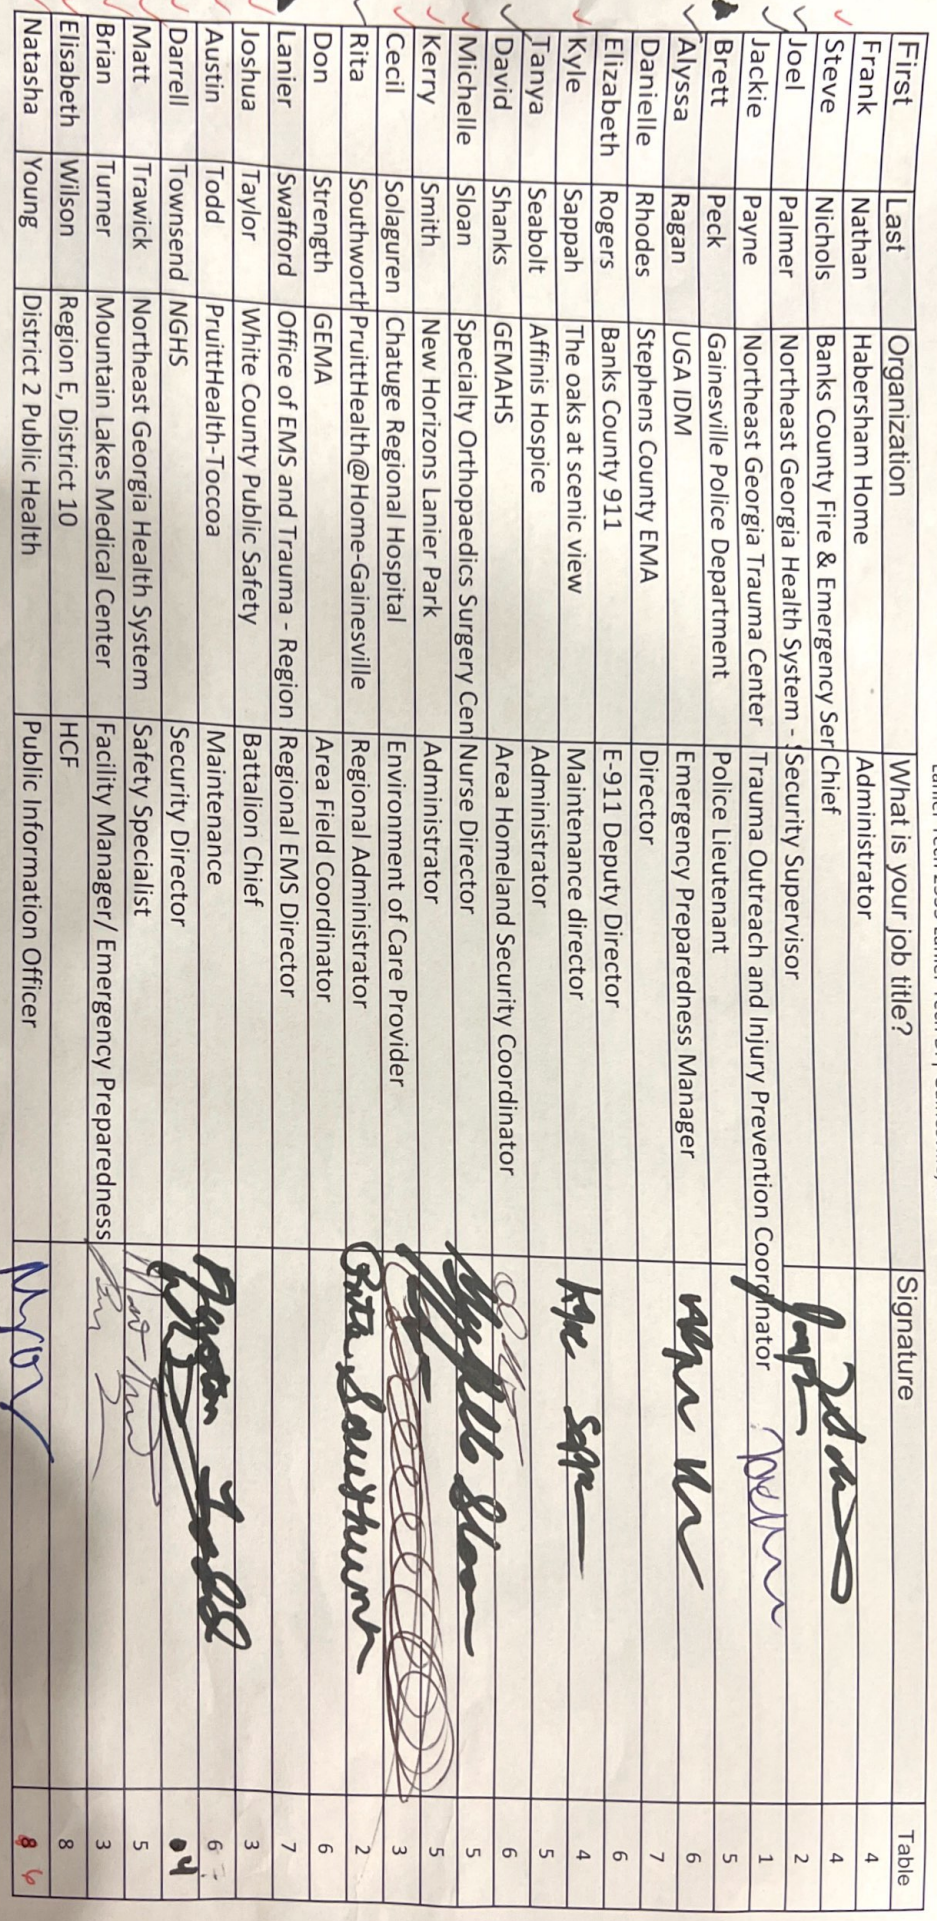 First Last Organization What is your job title? Signature Table
Frank Nathan Habersham Home Administrator 4
Steve Nichols Banks County Fire & Emergency Ser Chief 4
Joel Palmer Northeast Georgia Health System - S Security Supervisor 2
Jackie Payne Northeast Georgia Trauma Center Trauma Outreach and Injury Prevention Coordinator 1
Brett Peck Gainesville Police Department Police Lieutenant 5
Alyssa Ragan UGA IDM Emergency Preparedness Manager 6
Danielle Rhodes Stephens County EMA Director 7
Elizabeth Rogers Banks County 911 E-911 Deputy Director 6
Kyle Sappah The oaks at scenic view Maintenance director 4
Tanya Seabolt Affinis Hospice Administrator 5
David Shanks GEMAHS Area Homeland Security Coordinator 6
Michelle Sloan Specialty Orthopaedics Surgery Cen Nurse Director Michelle Sloan 5
Kerry Smith New Horizons Lanier Park Administrator 5
Cecil Solaguren Chatuge Regional Hospital Environment of Care Provider 3
Rita Southworth PruittHealth@Home-Gainesville Regional Administrator Rita Southworth 2
Don Strength GEMA Area Field Coordinator 6
Lanier Swafford Office of EMS and Trauma - Region Regional EMS Director 7
Joshua Taylor White County Public Safety Battalion Chief 3
Austin Todd PruittHealth-Toccoa Maintenance Austin Todd 6
Darrell Townsend NGHS Security Director 4
Matt Trawick Northeast Georgia Health System Safety Specialist 5
Brian Turner Mountain Lakes Medical Center Facility Manager/ Emergency Preparedness 3
Elisabeth Wilson Region E, District 10 HCF 8
Natasha Young District 2 Public Health Public Information Officer 8 6